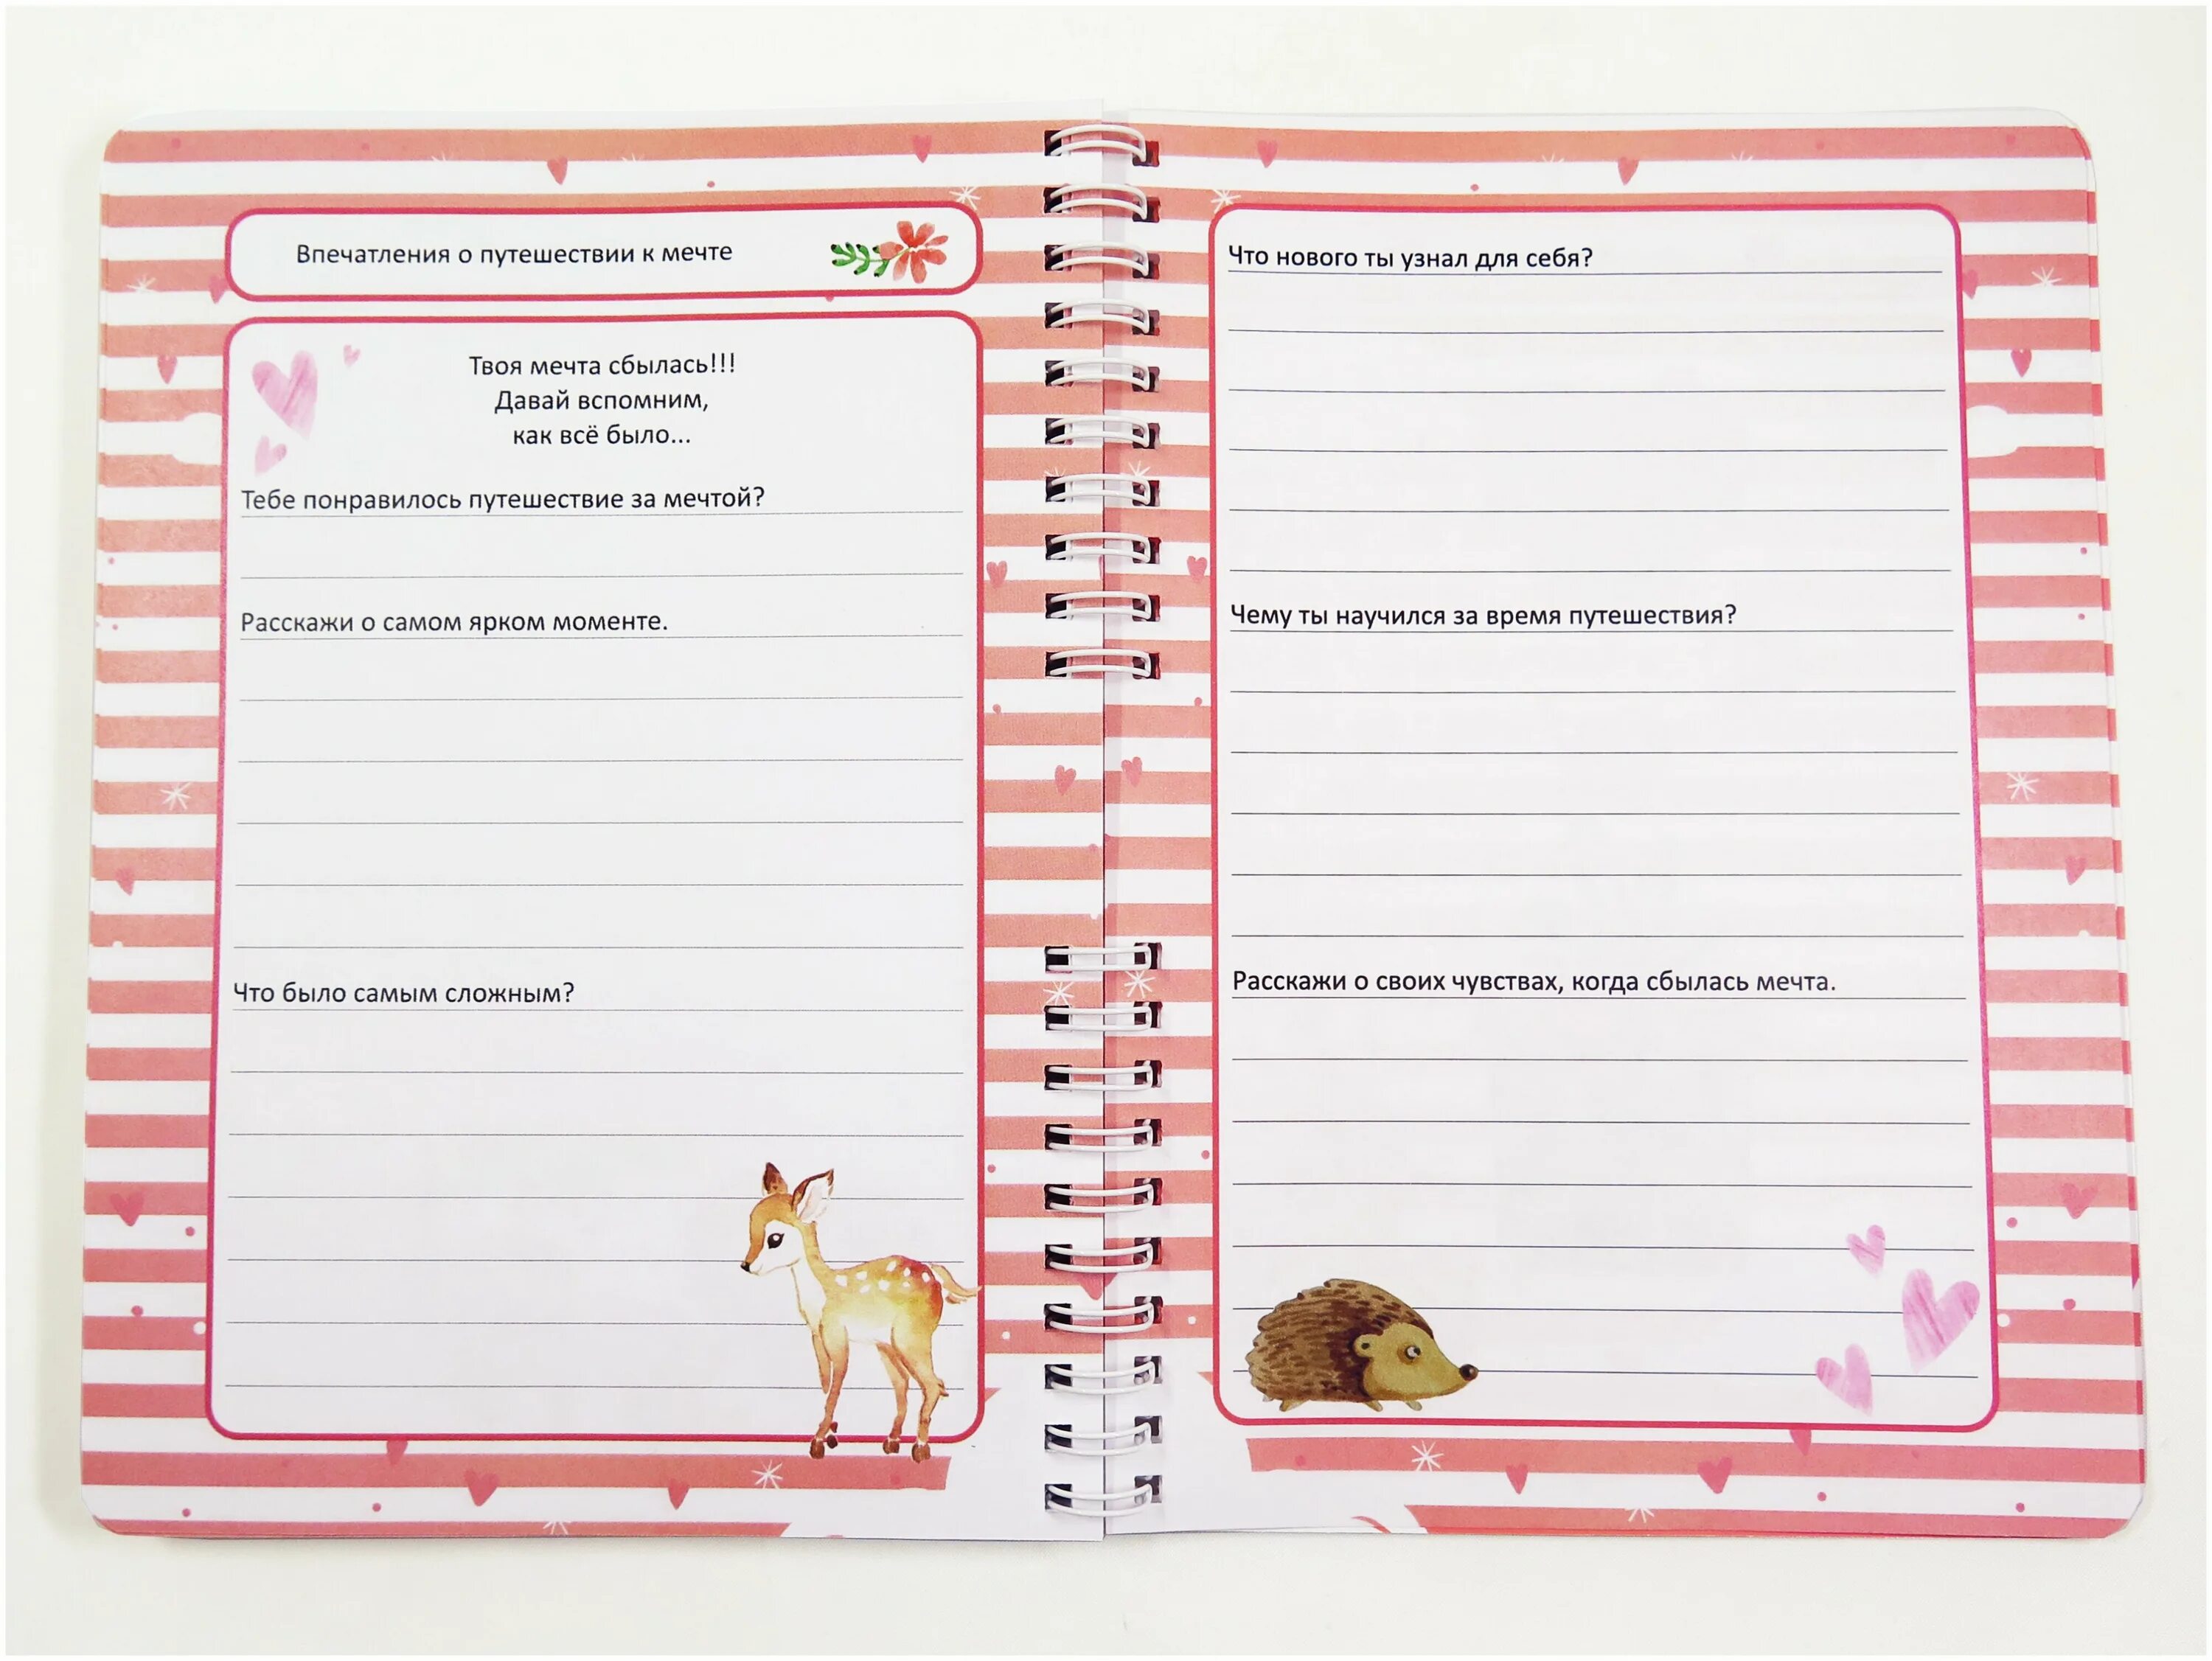 Впечатления о путешествии к мечте
Твоя мечта сбылась!!!
Давай вспомним,
как всё было...
Тебе понравилось путешествие за мечтой?
Расскажи о самом ярком моменте.
Что было самым сложным?
Что нового ты узнал для себя?
Чему ты научился за время путешествия?
Расскажи о своих чувствах, когда сбылась мечта.